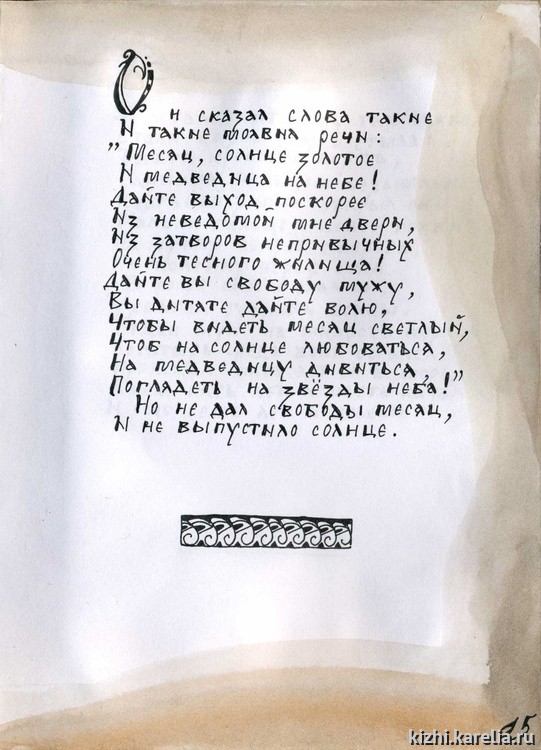 Он сказал слова такие
И такие молвил речи:
"Месяц, солнце золотое
И медведица на небе!
Дайте выход поскорее
Из неведомой мне двери,
Из затворов непривычных
Очень тесного жилища!
Дайте вы свободу мужу,
Вы дитяте дайте волю,
Чтобы видеть месяц светлый,
Чтоб на солнце любоваться,
На медведицу дивиться,
Поглядеть на звёзды неба!"
Но не дал свободы месяц,
И не выпустило солнце.
15
kizhi.karelia.ru